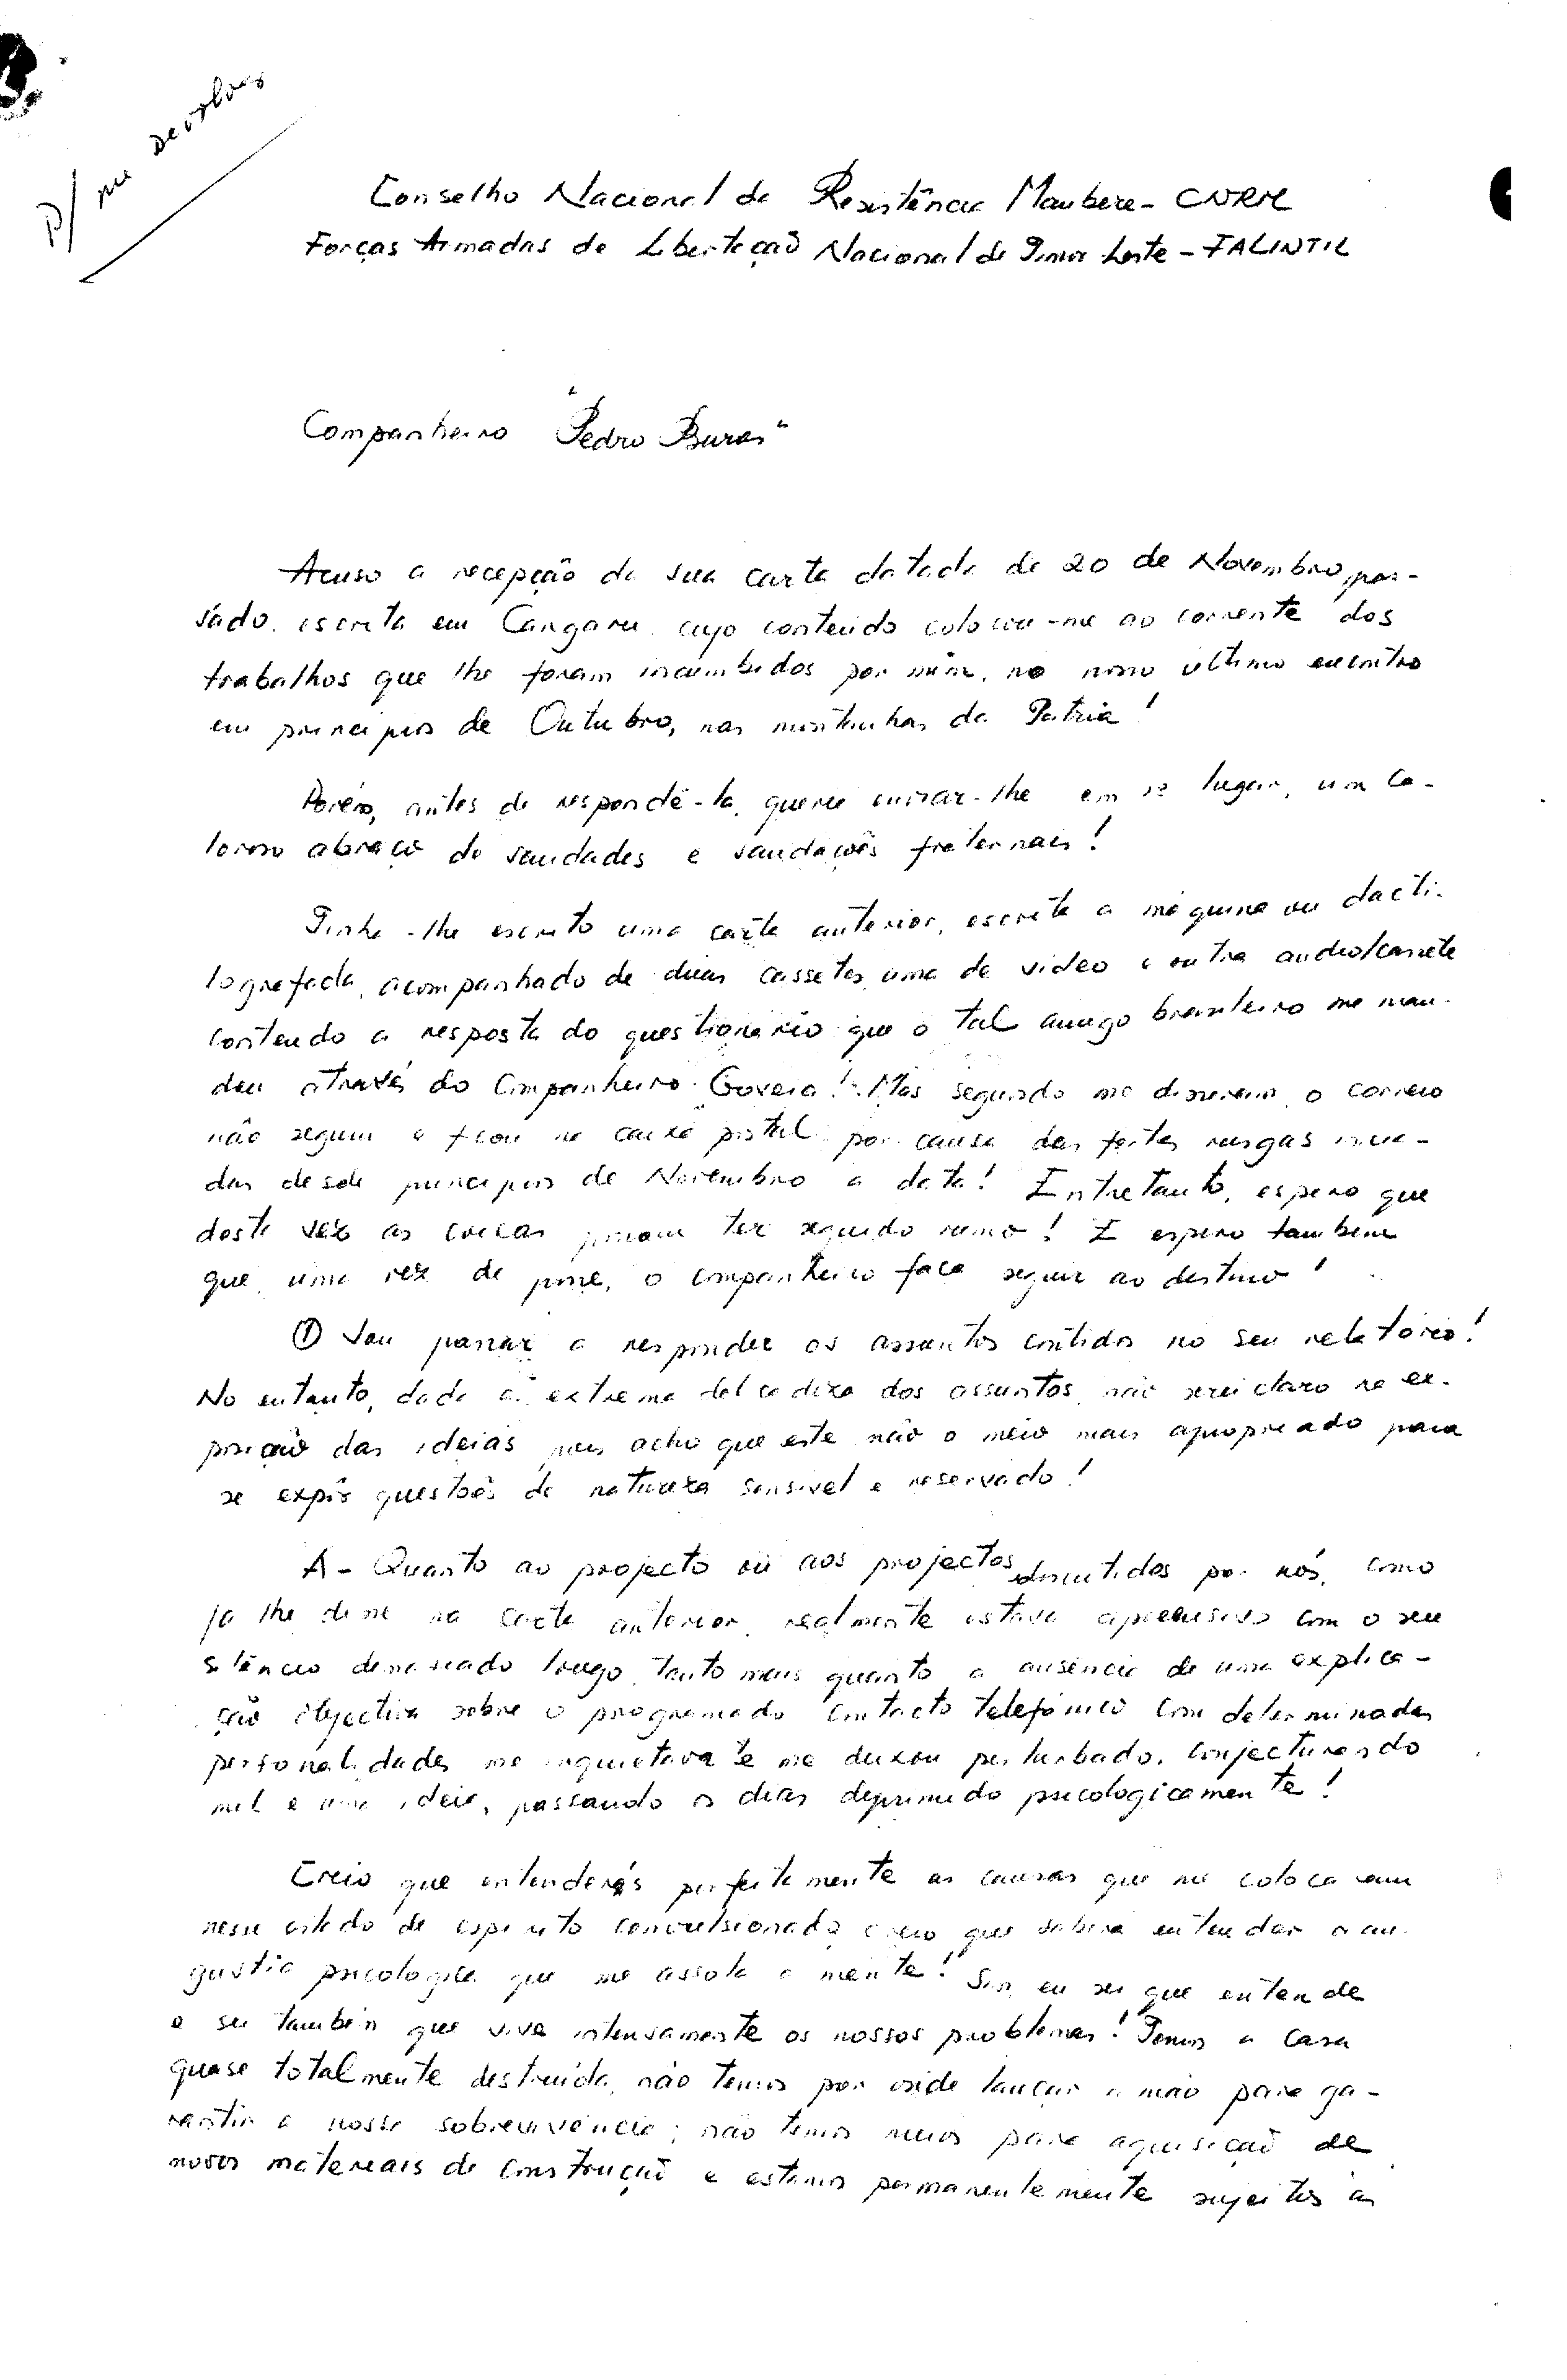 P/ me devolver
Conselho Nacional da Resistência Maubere - CNRM
Forças Armadas de Libertação Nacional de Timor Leste - FALINTIL
Companheiro "Pedro Buras"
Acuso a recepção da sua carta datada de 20 de Novembro, pas-
sado, escrita em Cangaru, cujo conteúdo colocou-me ao corrente dos
trabalhos que lhe foram incumbidos por mim, no nosso último encontro
em principios de Outubro, nas montanhas da Pátria!
Porém, antes de respondê-la, queria enviar-lhe em 1º lugar, um ca-
loroso abraço de saudades e saudações fraternais!
Tinha-lhe escrito uma carta anterior, escrita a máquina ou dacti-
lografada, acompanhado de duas cassetes, uma de video e outra audio/cassete
contendo a resposta do questionário que o tal amigo brasileiro me man-
dou através do Companheiro Goveia! Mas segundo me disseram o correio
não seguiu e ficou na caixa postal por causa das fortes rusgas inicia-
das desde principios de Novembro a data! Entretanto, espero que
desta vez as coisas possam ter seguido rumo! E espero também
que, uma vez de posse, o companheiro faça seguir ao destino!
① Vou passar a responder os assuntos contidos no seu relatório!
No entanto, dada a extrema delicadeza dos assuntos, não serei claro na ex-
posição das ideias pois acho que este não o meio mais apropriado para
se expôr questões de natureza sensivel e reservado!
A - Quanto ao projecto ou aos projectos discutidos por nós, como
já lhe disse na carta anterior, realmente estava apreensivo com o seu
silêncio demasiado longo, tanto mais quanto a ausência de uma explica-
ção objectiva sobre o programado contacto telefónico com determinadas
personalidades me inquietava e me deixou perturbado, conjecturando
mil e uma ideia, passando os dias deprimido psicologicamente!
Creio que entenderás perfeitamente as causas que me colocaram
nesse estado de espirito convulsionado, creio que saberá entender a an-
gustia psicologica que me assola a mente! Sim, eu sei que entende
e sei também que vive intensamente os nossos problemas! Temos a casa
quase totalmente destruída, não temos por onde lançar a mão para ga-
rantir a nossa sobrevivência; não temos meios para aquisição de
novos materiais de construção e estamos permanentemente sujeitos às